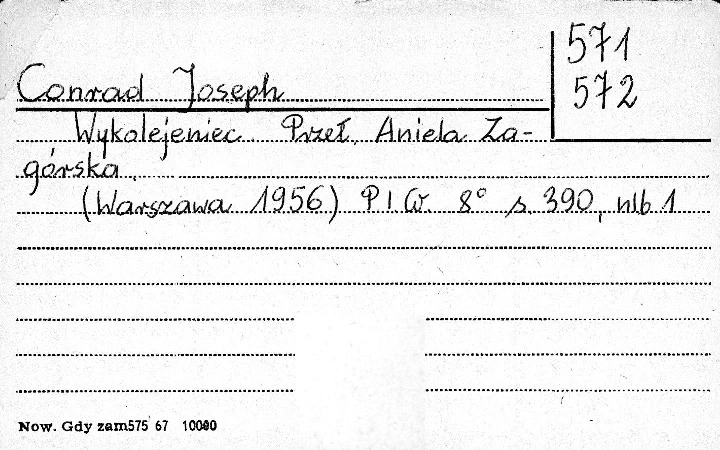 571
572
Conrad Joseph
Wykolejeniec. Przeł. Aniela Za-
górska.
(Warszawa 1956) PIW. 8° s. 390, nlb 1
Now. Gdy zam575 67 10000